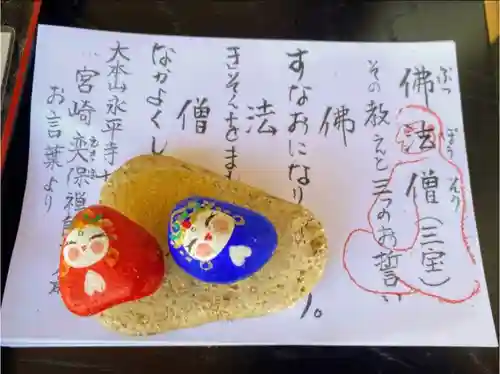 佛法僧(三宝)
ぶっ ぽう そう
その教えと三つのお誓い
佛
すなおになり
法
きそくをま
僧
なかよくし
大本山永平寺
宮崎奕保禅
みやざきえきほ
お言葉より